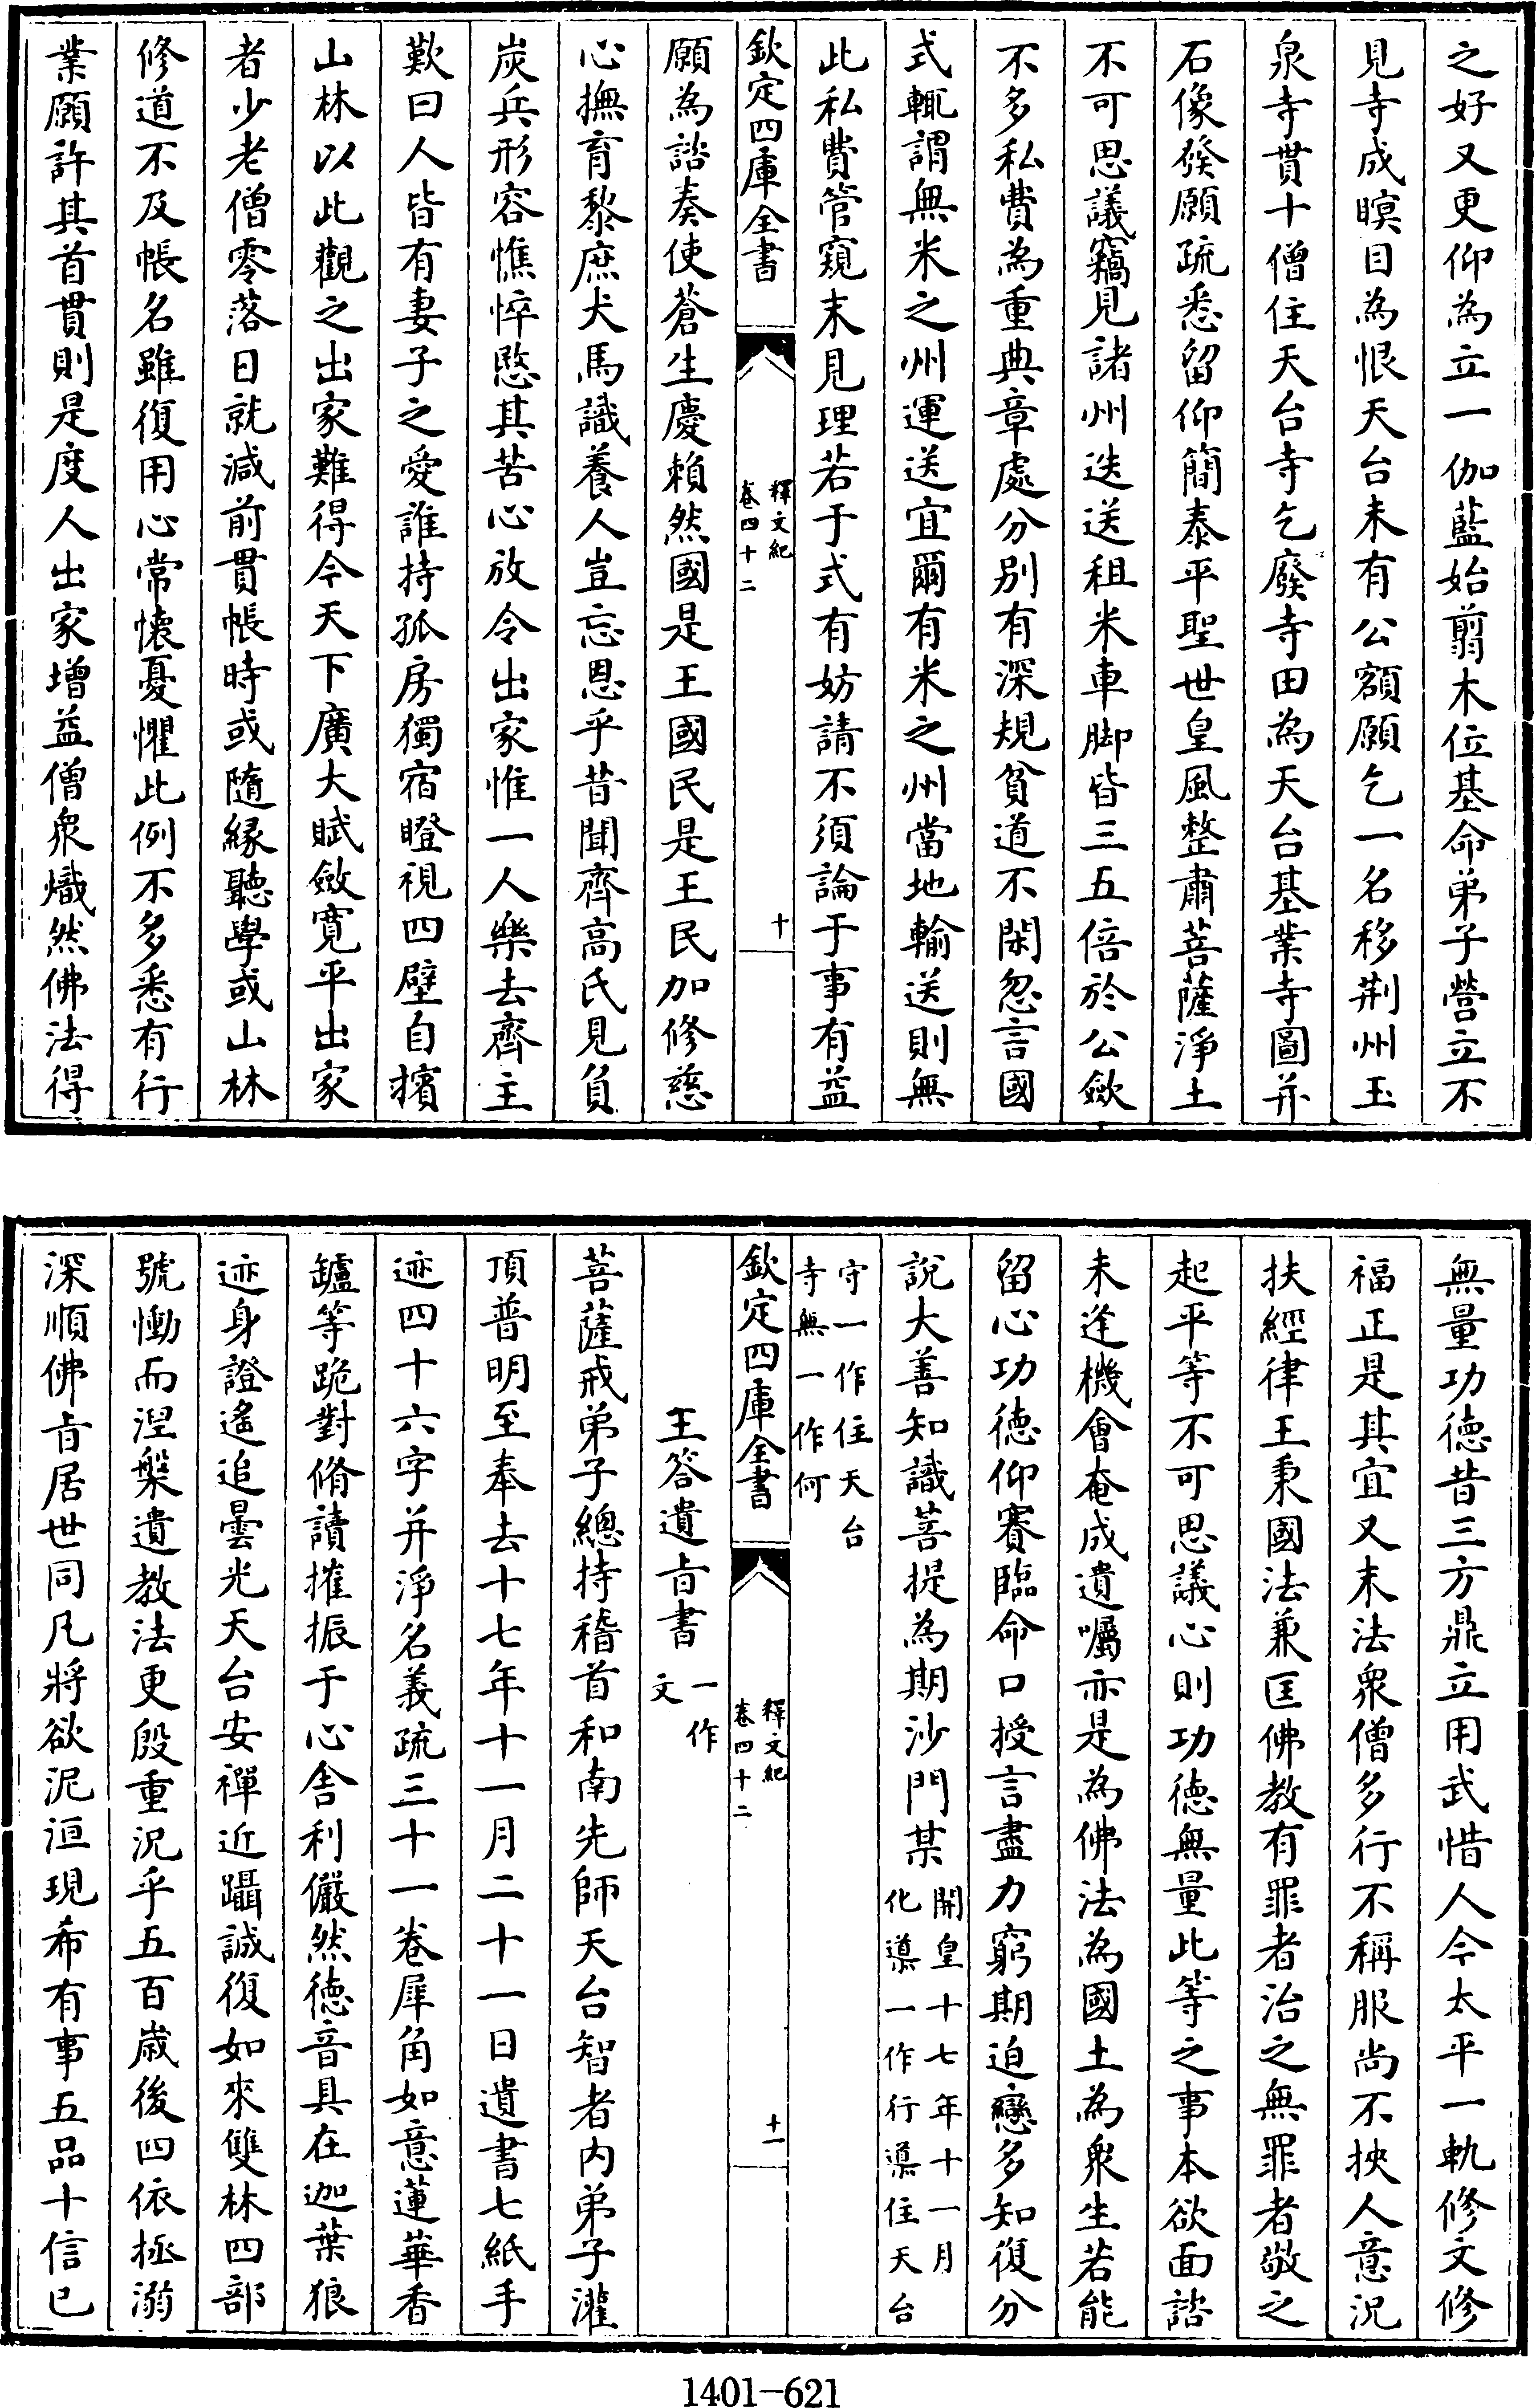 之好又更仰為立一伽藍始剪木位基命弟子營立不
見寺成瞑目為恨天台未有公額願乞一名移荆州玉
泉寺貫十僧住天台寺乞廢寺田為天台基業寺圖并
石像發願疏悉留仰簡泰平聖世皇風整肅菩薩淨土
不可思議竊見諸州迭送租米車脚皆三五倍於公斂
不多私費為重典章處分别有深規貧道不閑忽言國
式輒謂無米之州運送宜爾有米之州當地輸送則無
此私費管窺末見理若于式有妨請不須論于事有益
欽定四庫全書
釋文紀
卷四十二
十
願為諮奏使蒼生慶賴然國是王國民是王民加修慈
心撫育黎庶犬馬識養人豈忘恩乎昔聞齊高氏見負
炭兵形容憔悴愍其苦心放令出家惟一人樂去齊主
歎曰人皆有妻子之愛誰持孤房獨宿瞪視四壁自擯
山林以此觀之出家難得今天下廣大賦斂寛平出家
者少老僧零落日就減前貫帳時或隨緣聽學或山林
修道不及帳名雖復用心常懐憂懼此例不多悉有行
業願許其首貫則是度人出家增益僧衆熾然佛法得
無量功徳昔三方鼎立用武惜人今太平一軌修文修
福正是其宜又末法衆僧多行不稱服尚不挾人意況
扶經律王秉國法兼匡佛教有罪者治之無罪者敬之
起平等不可思議心則功徳無量此等之事本欲面諮
未逢機會奄成遺囑亦是為佛法為國土為衆生若能
留心功徳仰賽臨命口授言盡力窮期迫戀多知復分
說大善知識菩提為期沙門某開皇十七年十一月
化導一作行導住天台
守一作住天台
寺無一作何
欽定四庫全書
釋文紀
卷四十二
十一
王答遺㫖書一作
文
菩薩戒弟子總持稽首和南先師天台智者内弟子灌
頂普明至奉去十七年十一月二十一日遺書七紙手
迹四十六字并淨名義疏三十一卷犀角如意蓮華香
鑪等跪對脩讀摧振于心舍利儼然徳音具在迦葉狼
迹身證遙追曇光天台安禪近躡誠復如來雙林四部
號慟而涅槃遺教法更殷重況乎五百歳後四依拯溺
深順佛㫖居世同凡將欲泥洹現希有事五品十信已
1401-621